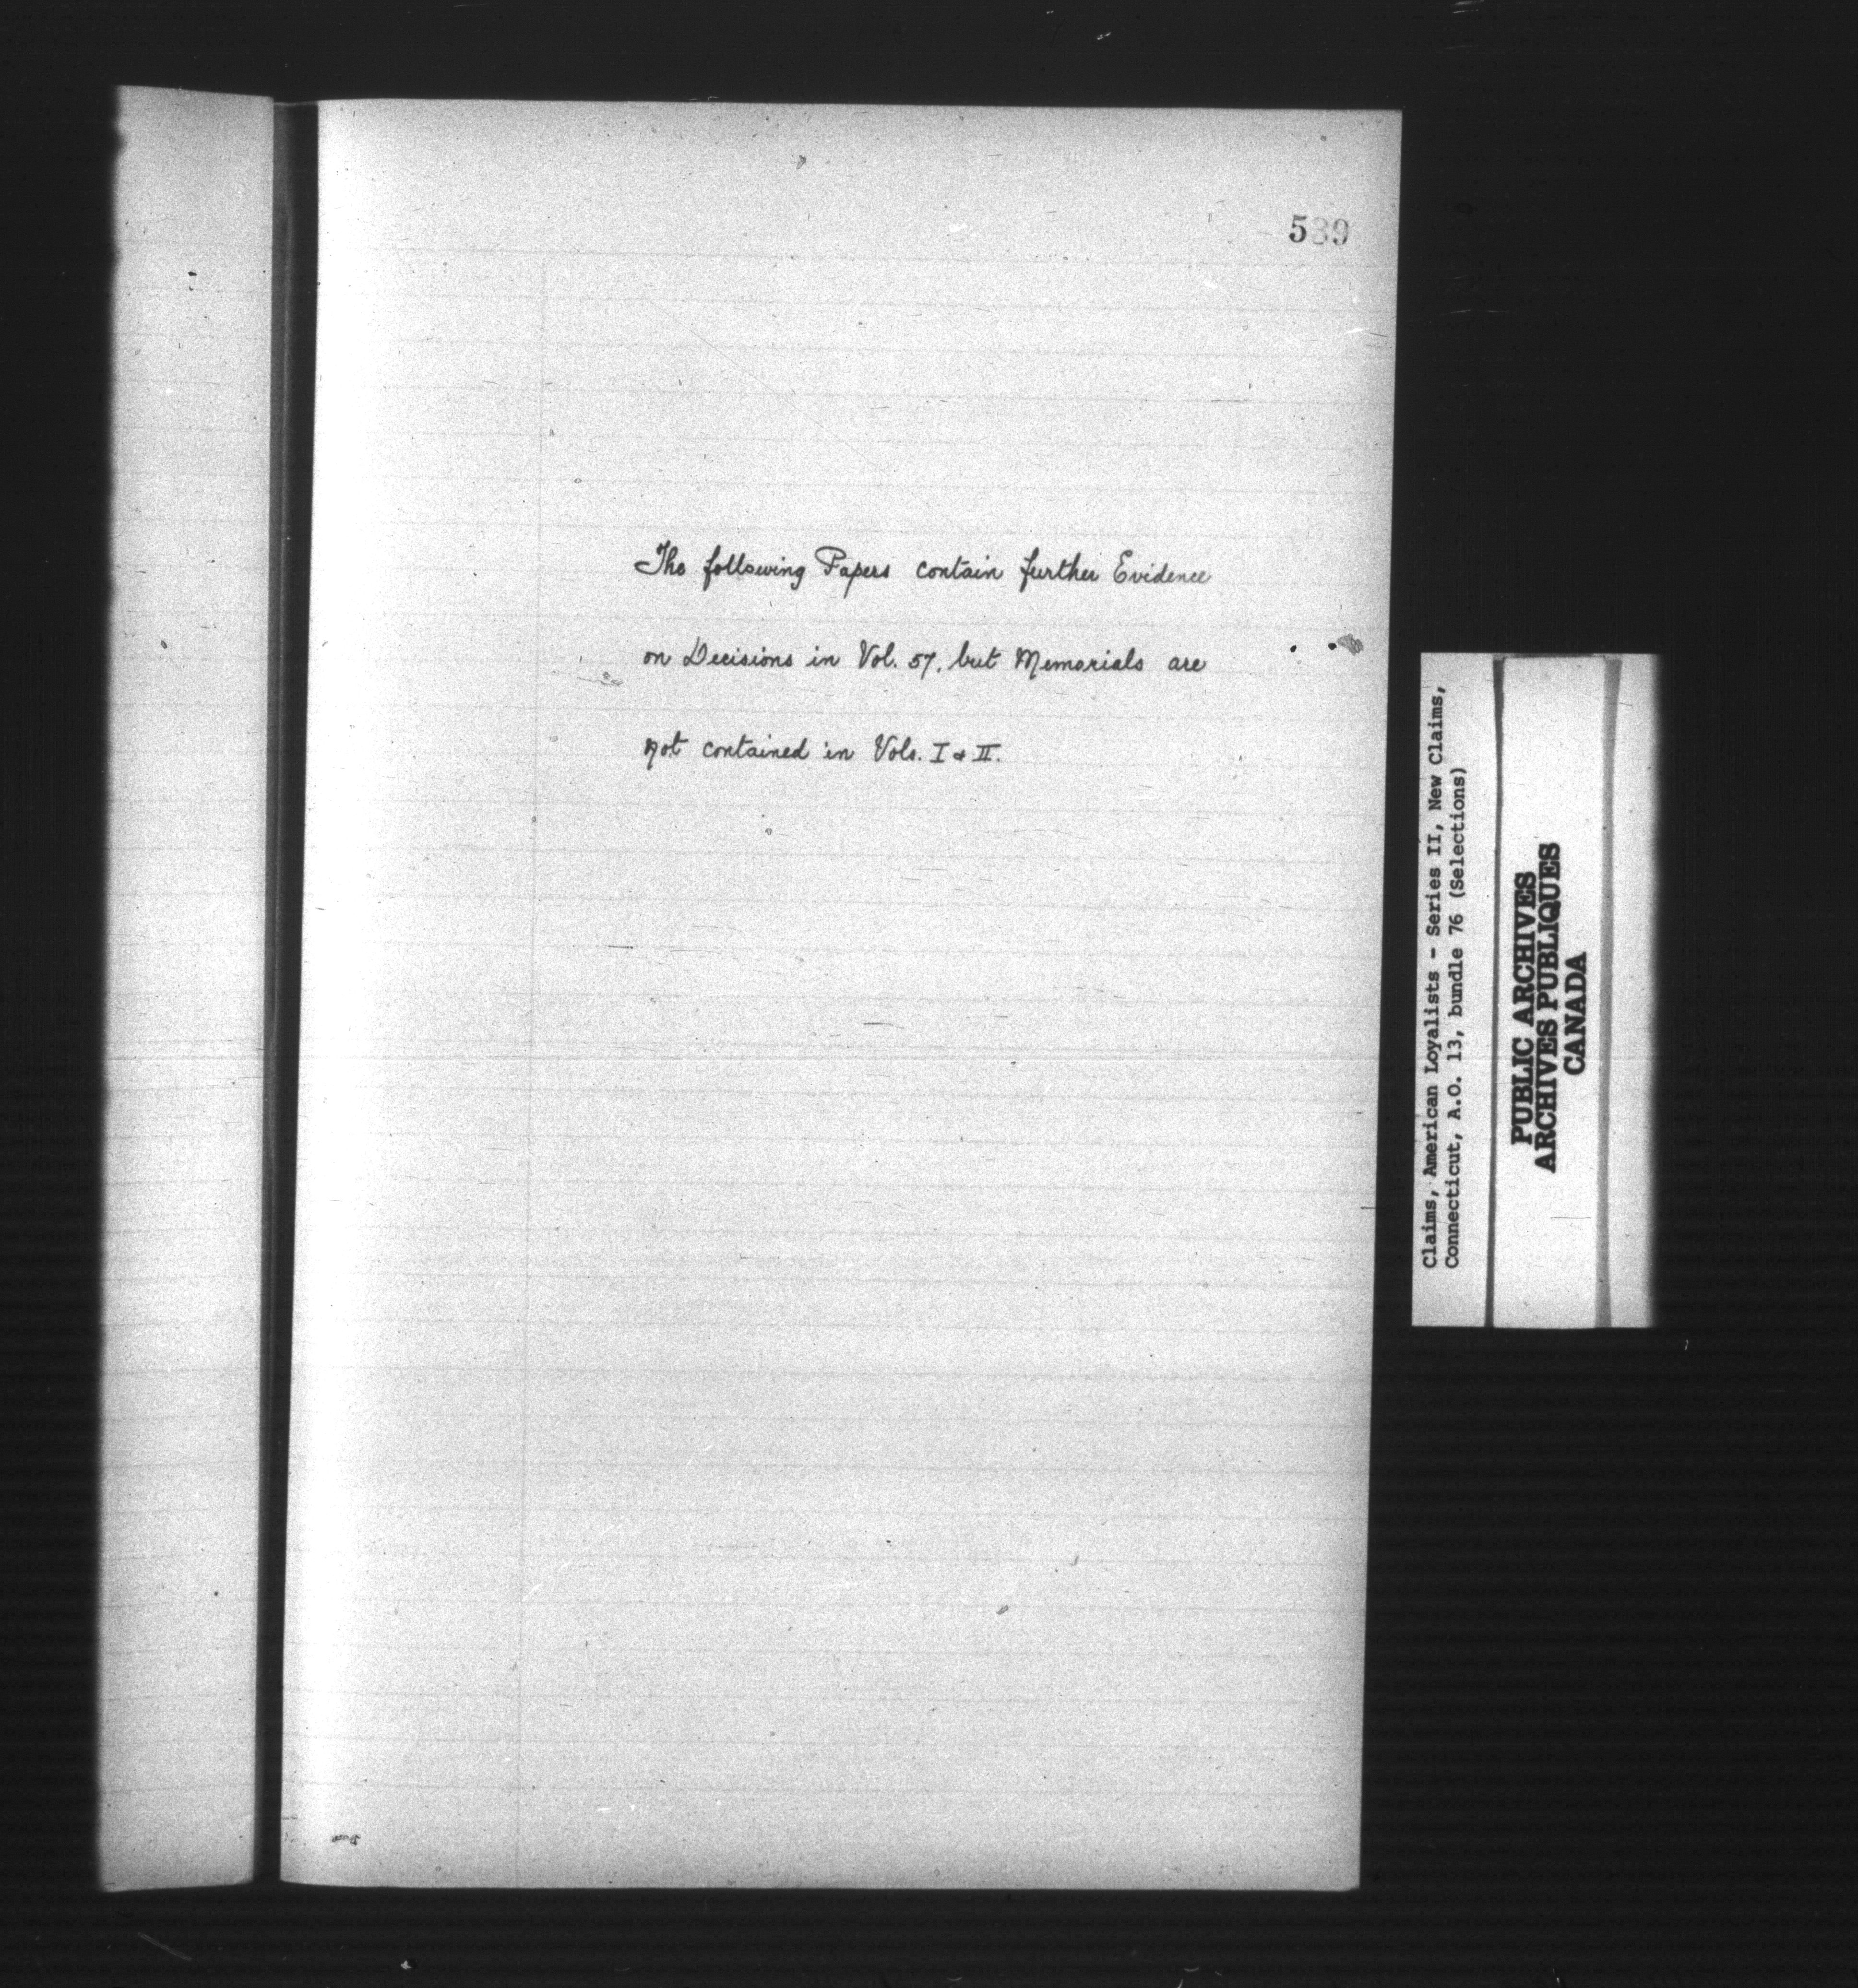 539
The following Papers contain further Evidence
on Decisions in Vol. 57. but Memorials are
not contained in Vols. I & II.
Claims, American Loyalists - Series II, New Claims,
Connecticut, A.O. 13, bundle 76 (Selections)
PUBLIC ARCHIVES
ARCHIVES PUBLIQUES
CANADA